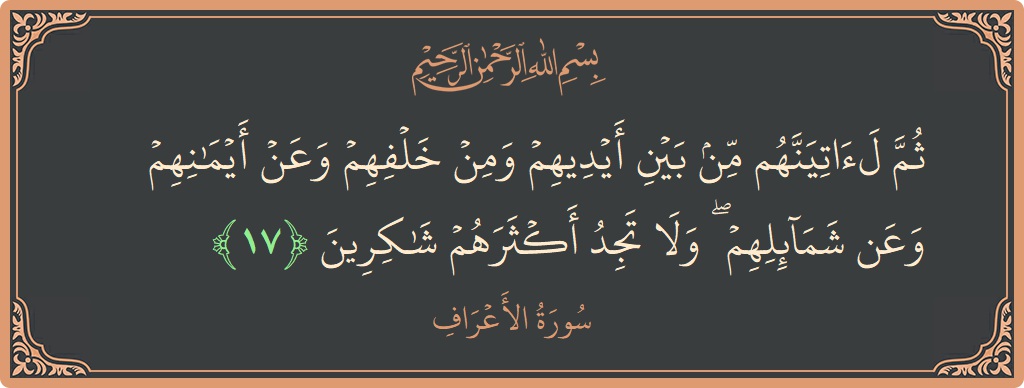 بِسْمِ اللَّهِ الرَّحْمَٰنِ الرَّحِيمِ
ثُمَّ لَءَاتِيَنَّهُم مِّنۢ بَيْنِ أَيْدِيهِمْ وَمِنْ خَلْفِهِمْ وَعَنْ أَيْمَـٰنِهِمْ
وَعَن شَمَآئِلِهِمْ ۖ وَلَا تَجِدُ أَكْثَرَهُمْ شَـٰكِرِينَ ﴿١٧﴾
سُورَةُ الأَعْرَافِ